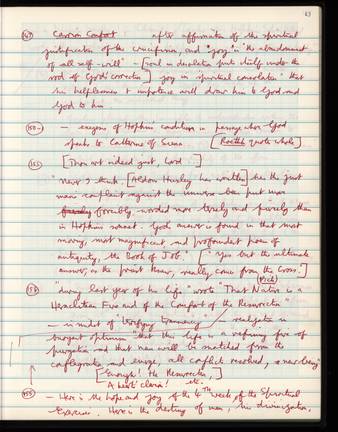 63
(147) Carrion Comfort after affirmation of the spiritual
justification of the crucifixion, and "joy" in the abandonment
of all self-will - [soul in desolation puts itself under the
rod of God's correction] joy in spiritual consolation "that
his helplessness & impotence will draw him to God and
God to him
(150-) - exegesis of Hopkins' condition in passage where God
speaks to Catherine of Siena [Roethke quote whole]
(155) [Thou art indeed just, Lord ]
"never, I think, [Aldous Huxley has written] has the just
man's complaint against the universe been put more
forcibly, worded more tersely and fiercely than
in Hopkins' sonnet. God's answer is found in that most
moving, most magnificent, and profoundest poem of
antiquity, the Book of Job." ["Yes but the ultimate
answer, as the priest knew, really came from the Cross.]
(Pick)
"during last year of his life" wrote "That Nature is a
Heraclitean Fire and of the Comfort of the Resurrection"
- in midst of "terrifying transiency" realizes in
buoyant optimism "that this life is a refining fire of
purgation and that man will be snatched from the
conflagration and emerge, all conflict resolved, a new being"
["Enough! the Resurrection,]
A heart's clarion! etc.
(155) - Here is the hope and joy of the 4th week of the Spiritual
Exercises. Here is the destiny of man, his divinization,